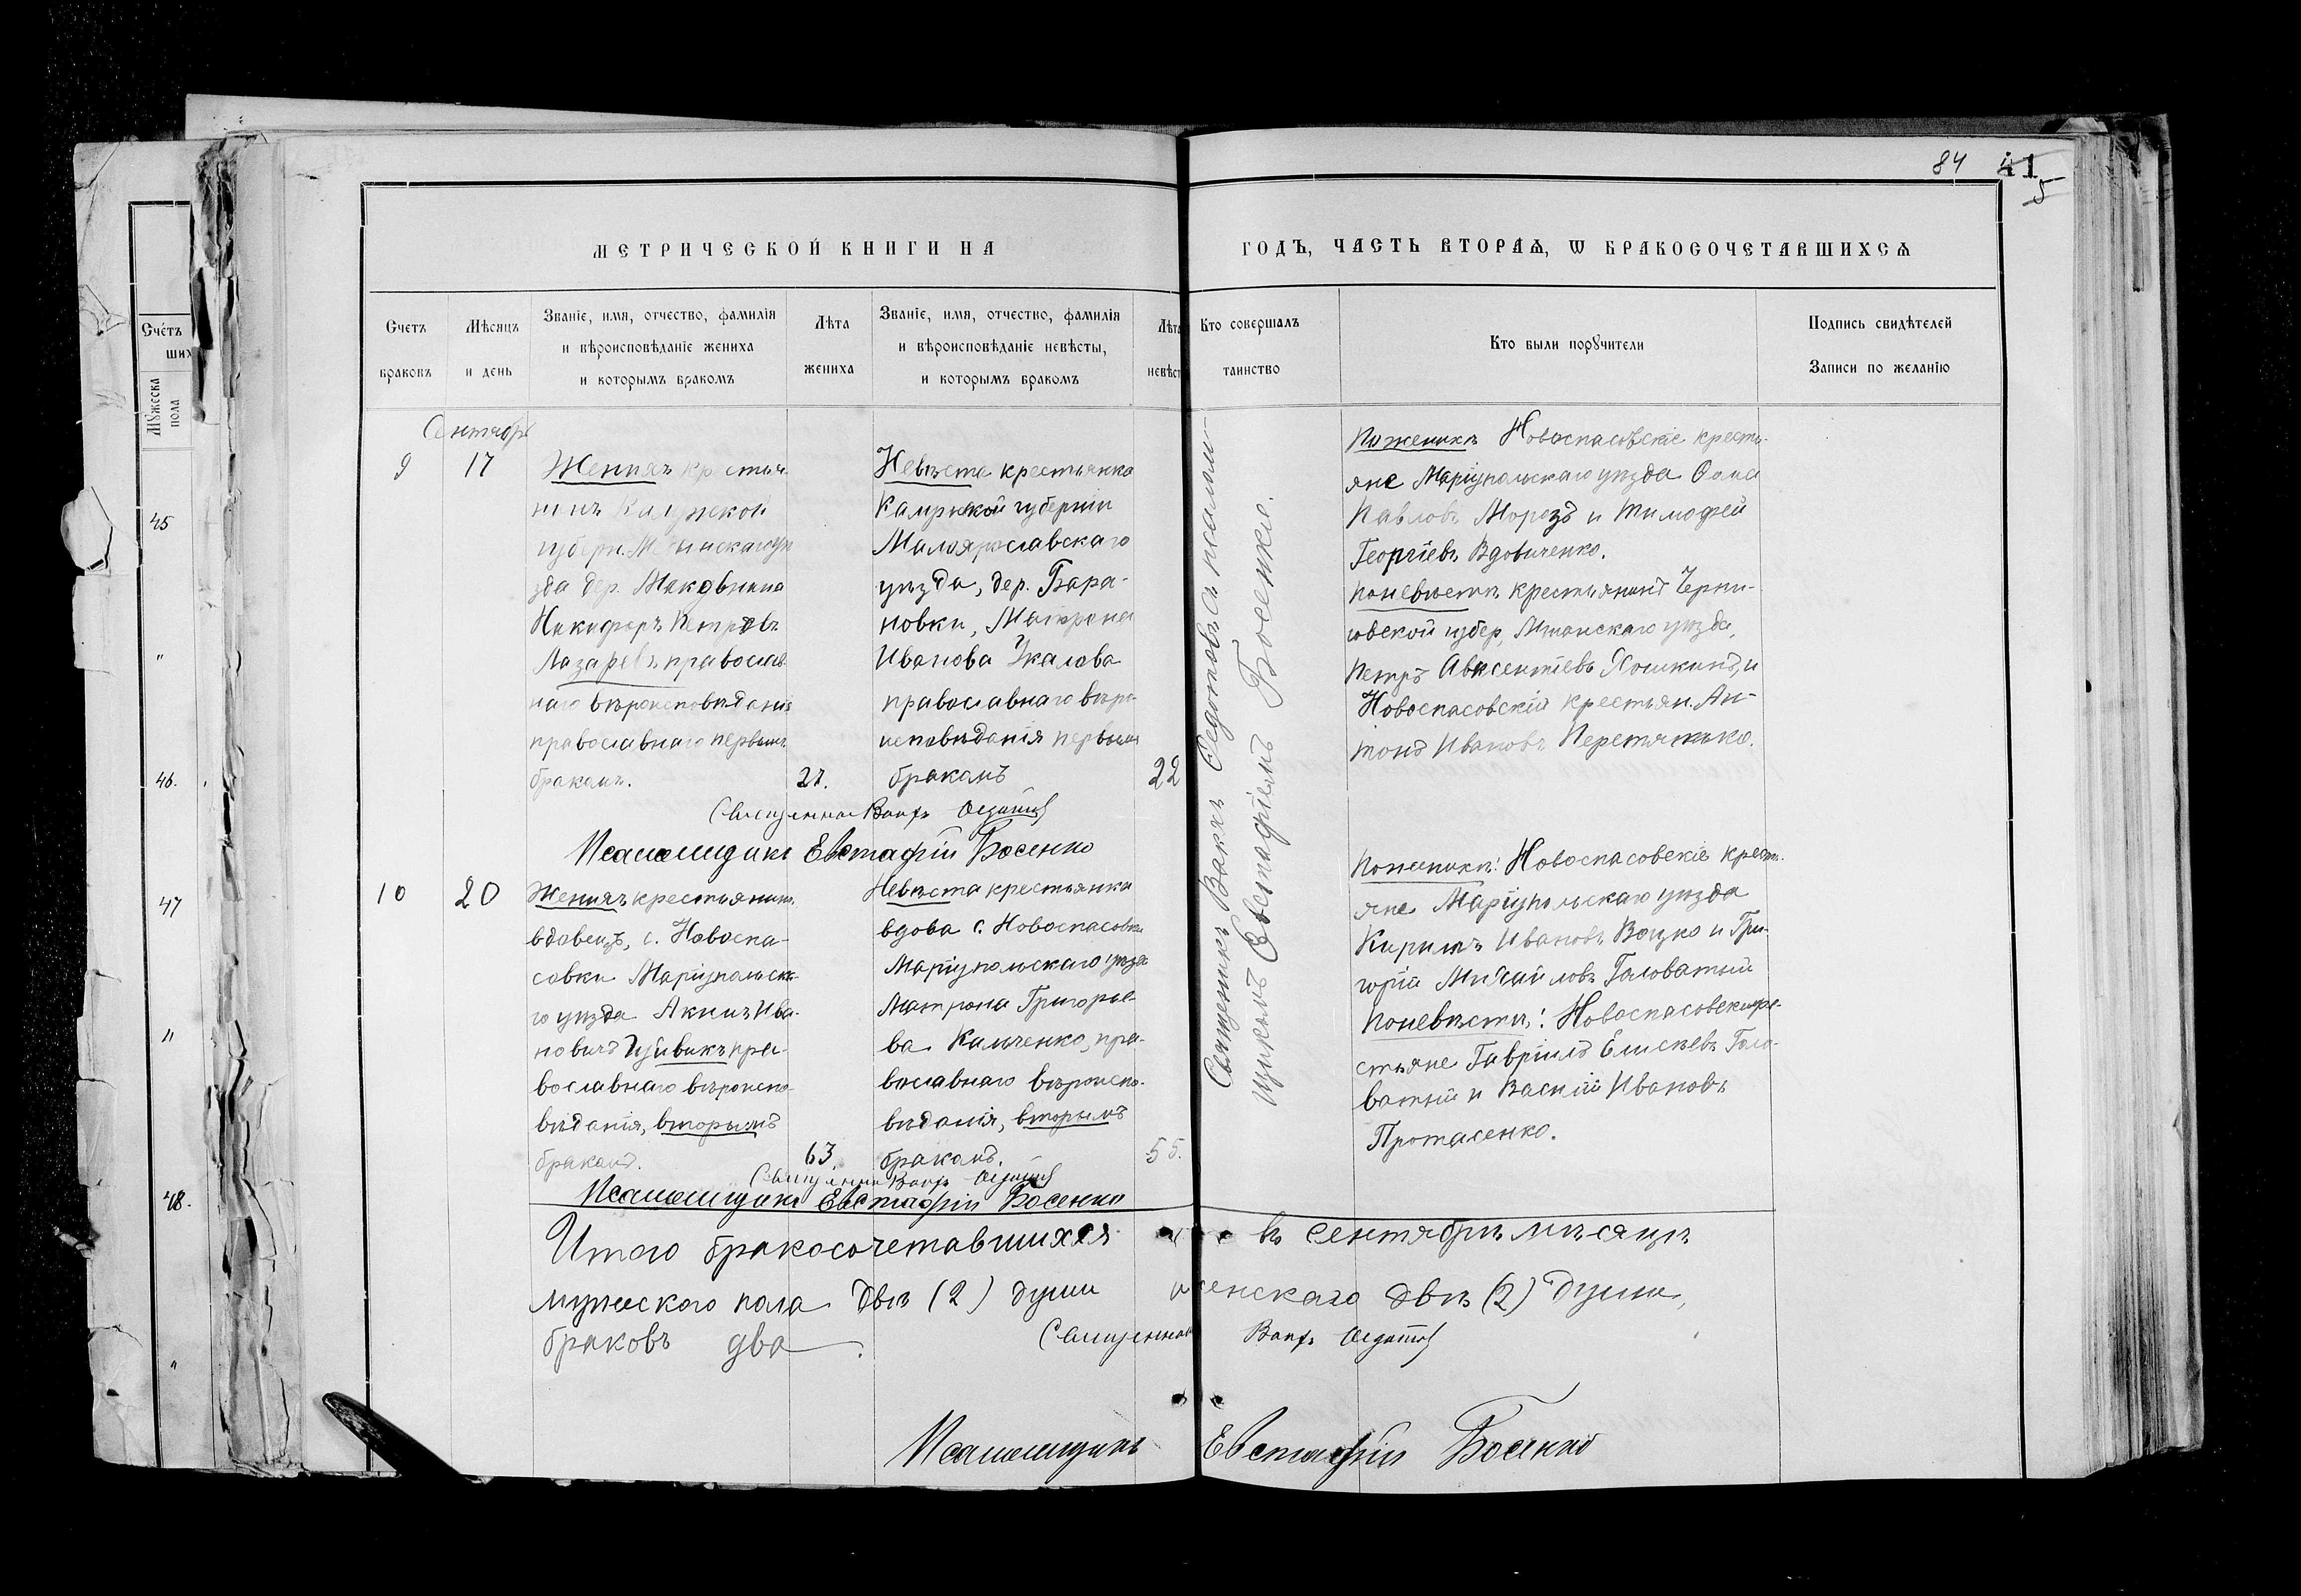 84 41
5
МЕТРИЧЕСКОЙ КНИГИ НА ГОДЪ, ЧАСТЬ ВТОРАѦ, Ѡ БРАКОСОЧЕТАВШИХСѦ
Счетъ
браковъ
Мѣсяцъ
и день
Званіе, имя, отчество, фамилія
и вѣроисповѣданіе жениха
и которымъ бракомъ
Лѣта
жениха
Званіе, имя, отчество, фамилія
и вѣроисповѣданіе невѣсты,
и которымъ бракомъ
Лѣта
невѣст
Кто совершалъ
таинство
Кто были порꙋчители
Подпись свидѣтелей
Записи по желанію
Счетъ
ших
Мꙋжеска
пола
45
"
46.
47
"
48.
"
Сентябр
9
17
Женихъ крестья-
нинъ Калужской
губерн. Медынскаго уѣ
зда дер.
Никифоръ Петровъ
Лазаревъ православ
наго вѣроисповѣданія
православнаго первымъ
бракомъ.
27.
Невѣста крестьянка
Калужской губерніи
Малоярославскаго
уѣзда, дер. Бара-
новки, Матрона
Иванова
православнаго вѣро-
исповѣданія первымъ
бракомъ
22
Священникъ Федотовъ
Псаломщикъ Евстафій Босенко
Священникъ Федотовъ съ псалом-
щикомъ Евстафіемъ Босенко.
По женихѣ Новоспасовскіе кресть-
яне Маріупольскаго уѣзда Фома
Павловъ Морозъ и Тимофей
Георгіевъ Вдовиченко.
По невѣстѣ крестьянинъ Черни-
говской губер, Мглинскаго уѣзда,
Петръ Авксентіевъ и
Новоспасовскій крестьян. Ан-
тонъ Ивановъ Перетятько.
10
20
Женихъ крестьянинъ
вдовецъ, с. Новоспа-
совки Маріупольска-
го уѣзда Ива-
новичъ пра-
вославнаго вѣроиспо-
вѣданія, вторымъ
бракомъ.
63.
Невѣста крестьянка
вдова с. Новоспасовки
Маріупольскаго уѣзда
Матрона Григорье-
ва Кальченко, пра-
вославнаго вѣроиспо-
вѣданія, вторымъ
бракомъ.
55.
Священникъ Федотовъ
Псаломщикъ Евстафій Босенко
По женихѣ: Новоспасовскіе кресть-
яне Маріупольскаго уѣзда
Кириллъ Ивановъ и Гри-
горій Михайловъ Головатый
По невѣстѣ: Новоспасовскіе кре-
стьяне Гавріилъ Елисѣевъ Голо-
ватый и Василій Ивановъ
Протасенко.
Итого бракосочетавшихся въ Сентябрѣ мѣсяцѣ
мужескаго пола двѣ (2) души женскаго двѣ (2) души,
браковъ два.
Священникъ Федотовъ
Псаломщикъ Евстафій Босенко